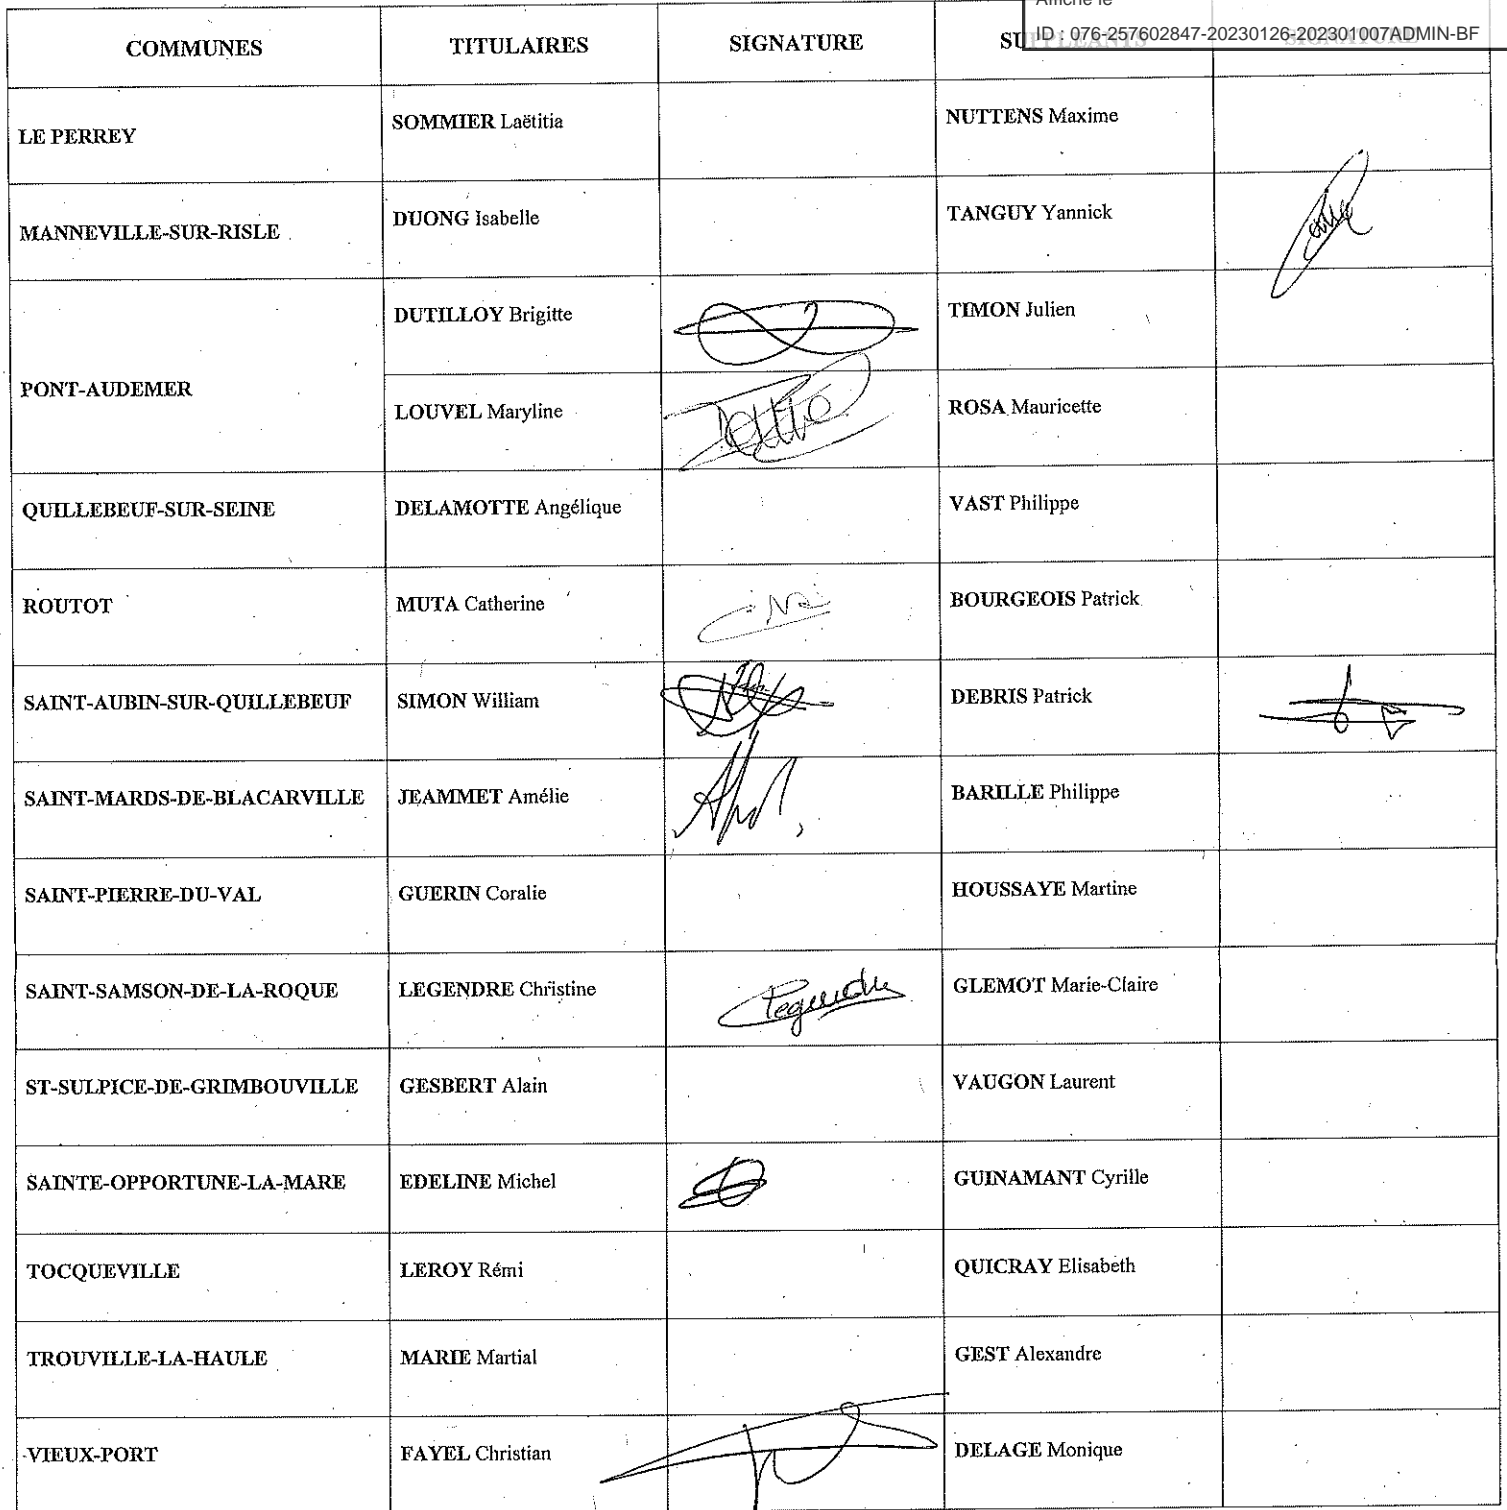 Affiché le
ID : 076-257602847-20230126-202301007ADMIN-BF
COMMUNES TITULAIRES SIGNATURE SUPPLEANTS SIGNATURE
LE PERREY SOMMIER Laëtitia NUTTENS Maxime
MANNEVILLE-SUR-RISLE DUONG Isabelle TANGUY Yannick
PONT-AUDEMER DUTILLOY Brigitte TIMON Julien
LOUVEL Maryline ROSA Mauricette
QUILLEBEUF-SUR-SEINE DELAMOTTE Angélique VAST Philippe
ROUTOT MUTA Catherine BOURGEOIS Patrick
SAINT-AUBIN-SUR-QUILLEBEUF SIMON William DEBRIS Patrick
SAINT-MARDS-DE-BLACARVILLE JEAMMET Amélie BARILLE Philippe
SAINT-PIERRE-DU-VAL GUERIN Coralie HOUSSAYE Martine
SAINT-SAMSON-DE-LA-ROQUE LEGENDRE Christine Legendre GLEMOT Marie-Claire
ST-SULPICE-DE-GRIMBOUVILLE GESBERT Alain VAUGON Laurent
SAINTE-OPPORTUNE-LA-MARE EDELINE Michel GUINAMANT Cyrille
TOCQUEVILLE LEROY Rémi QUICRAY Elisabeth
TROUVILLE-LA-HAULE MARIE Martial GEST Alexandre
VIEUX-PORT FAYEL Christian DELAGE Monique